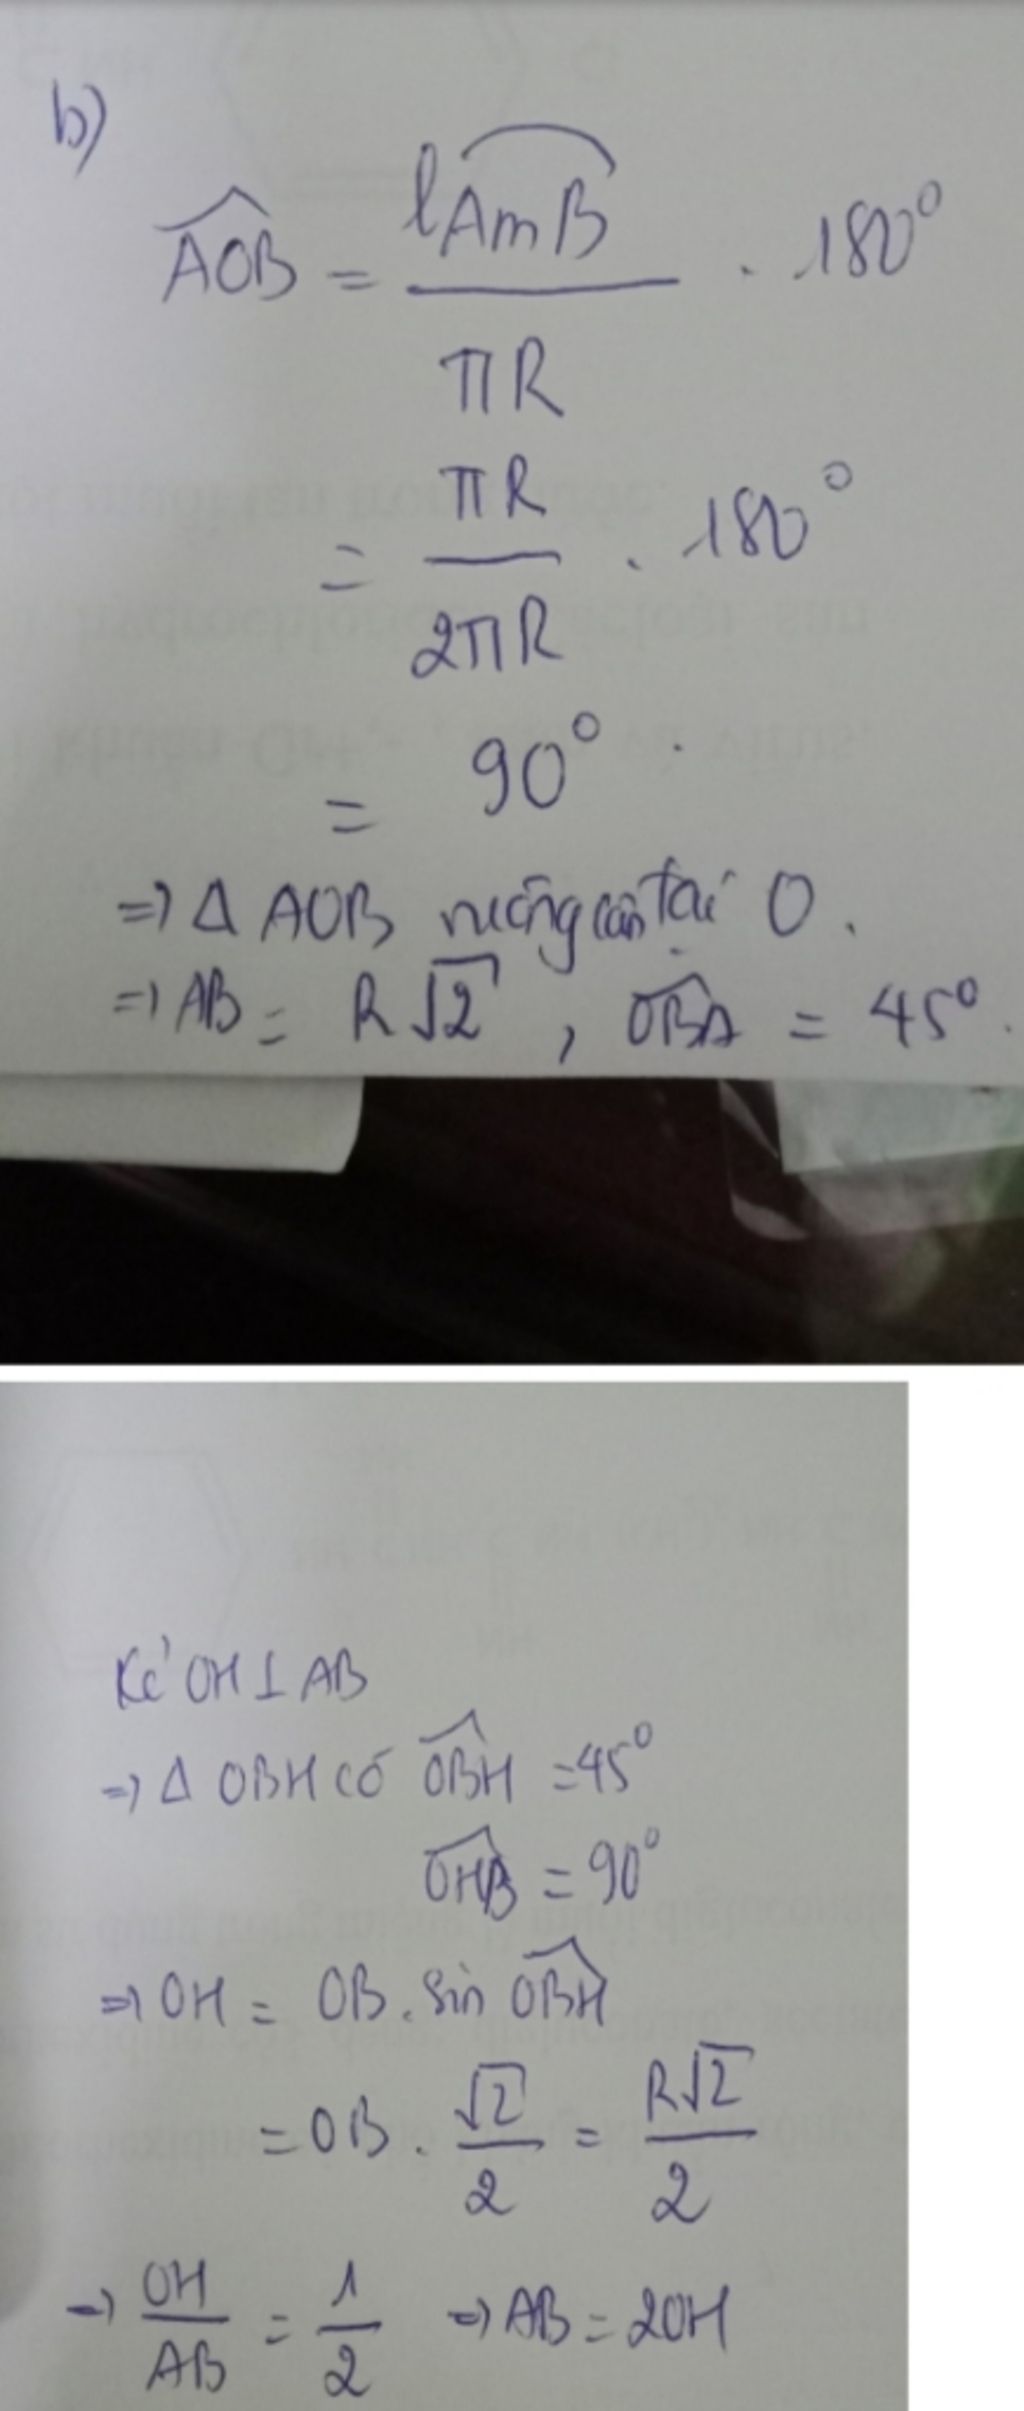 b)
$\widehat{AOB} = \frac{l\overset{\frown}{AmB}}{\pi R} . 180^0$
$= \frac{\pi R}{2\pi R} . 180^0$
$= 90^0$
=> Δ AOB vuông cân tại O.
=> AB = R√2, $\widehat{OBA} = 45^0$.
Kẻ OH ⊥ AB
=> Δ OBH có $\widehat{OBH} = 45^0$
$\widehat{OHB} = 90^0$
=> OH = OB . sin $\widehat{OBH}$
$= OB . \frac{\sqrt{2}}{2} = \frac{R\sqrt{2}}{2}$
=> $\frac{OH}{AB} = \frac{1}{2}$ => AB = 2OH